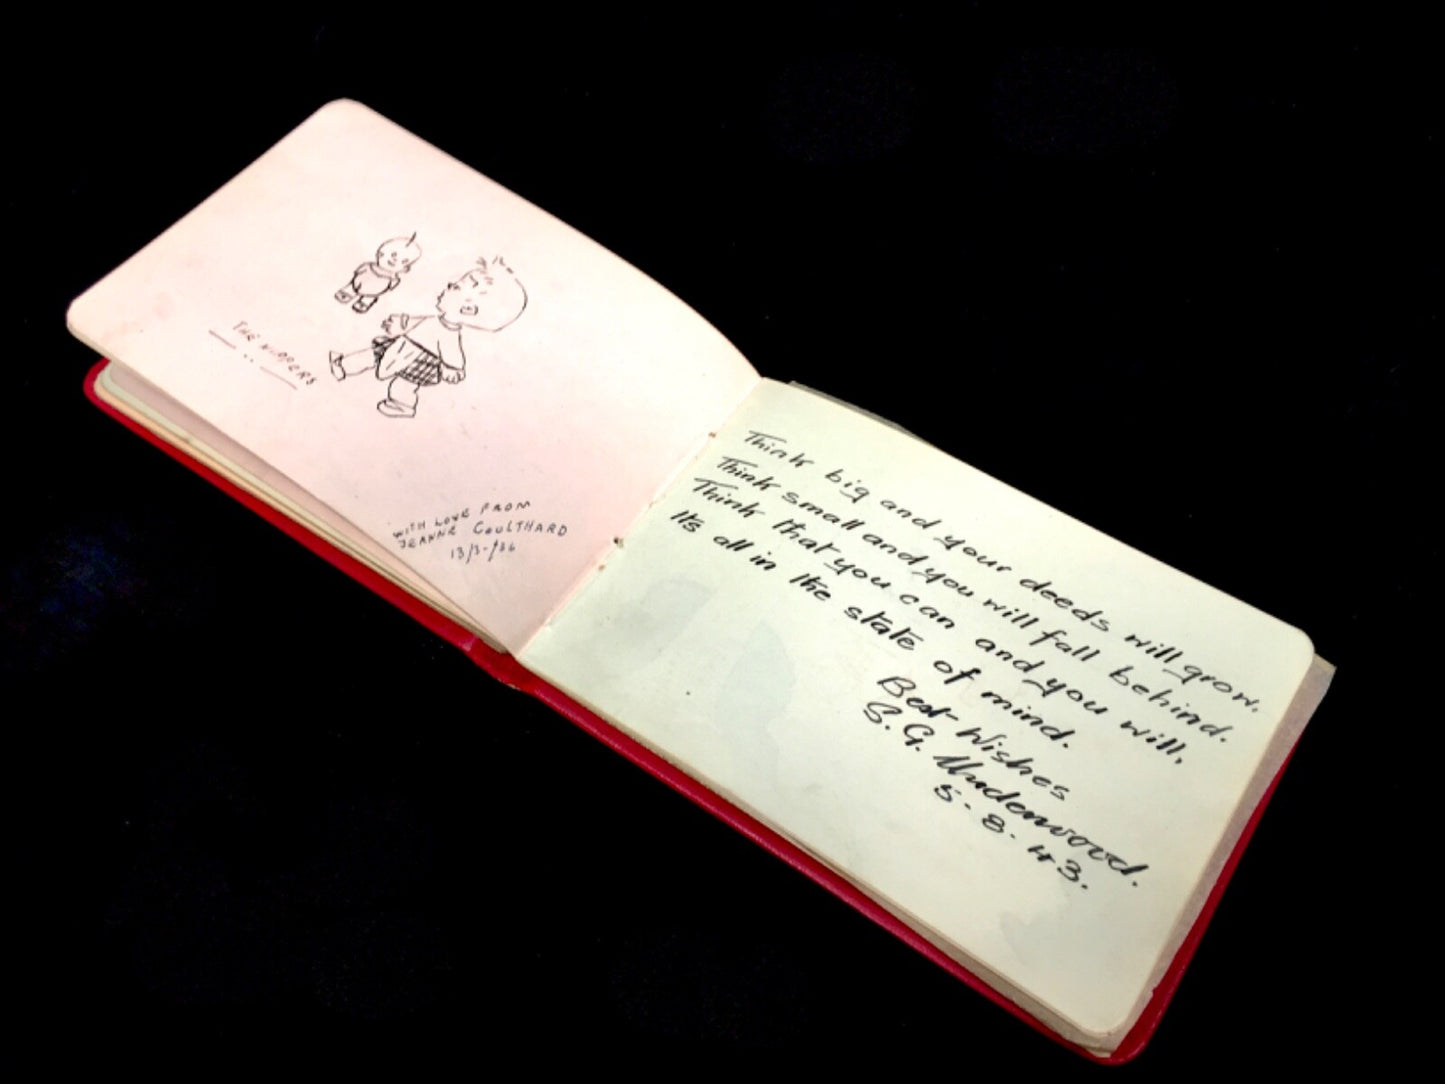 THE NIPPERS
WITH LOVE FROM
JEANNE COULTHARD
13/3-/36
Think big and your deeds will grow.
Think small and you will fall behind.
Think that you can and you will,
It's all in the state of mind.
Best Wishes
S. G. Underwood.
5. 8. 43.